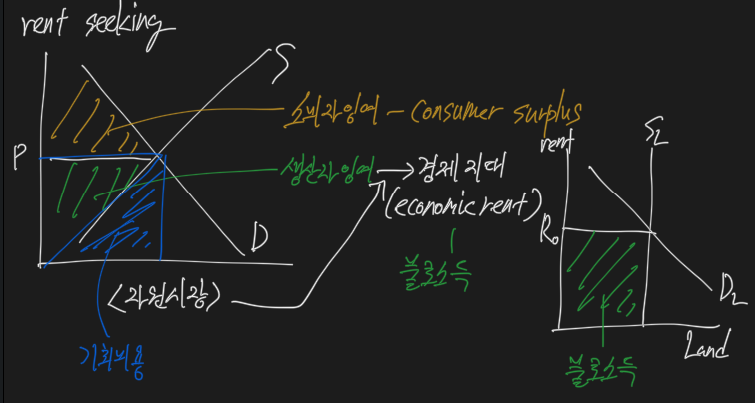 rent seeking
S
소비자잉여 - Consumer surplus
P
생산자잉여 → 경제지대
(economic rent)
불로소득
D
<자원시장>
기회비용
rent
S_L
R₀
D_L
Land
불로소득